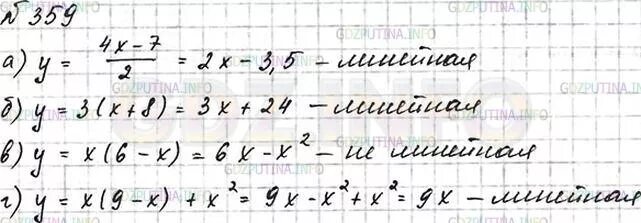 № 359
а) y = (4x - 7)/2 = 2x - 3,5 - линейная
б) y = 3(x + 8) = 3x + 24 - линейная
в) y = x(6 - x) = 6x - x² - не линейная
г) y = x(9 - x) + x² = 9x - x² + x² = 9x - линейная
GDZPUTINA.INFO
GDZ.INFO